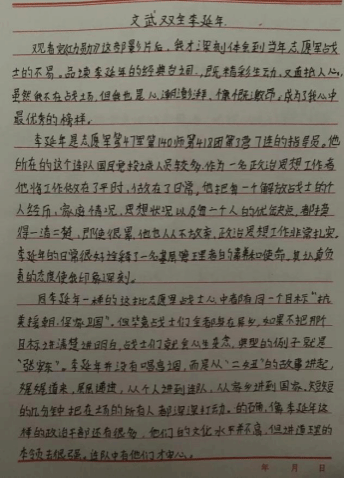 文武双全李延年
观看《功勋》这部影片后，我才深刻体会到当年志愿军战
士的不易。品读李延年的经典台词，既精彩生动，又直抵人心，
虽然他不在战场，但我也是心潮澎湃，慷慨激昂，成为了我心中
最优秀的榜样。
李延年是志愿军第47军第140师第418团第3营7连的指导员。他
所在的这个连队国民党投诚人员较多，作为一名政治思想工作者
他将工作做在了平时，做在了日常。他把每一个解放战士的个
人经历，家庭情况，思想状况以及每一个人的优缺点，都摸
得一清二楚，即使很累，他也从不放弃，政治思想工作非常扎实，
李延年的日常很好诠释了一名基层管理者的素养和使命，其认真负
责的态度使我印象深刻。
同李延年一样的这批志愿军战士心中都有同一个目标"抗
美援朝，保家卫国"。但毕竟战士们全都身在异乡，如果不把那个
目标讲清楚讲明白，战士们就会从生妄念，典型的例子就是
"张安东"。李延年并没有唱高调，而是从"二妞"的故事讲起，
娓娓道来，层层递进，从个人讲到连队，从家乡讲到国家，短短
的几分钟把在场的所有人都深深打动。的确，像李延年这
样的政治干部还有很多，他们的文化水平并不高，但讲道理的
本领去很强。连队中有他们才安心。
年 月 日